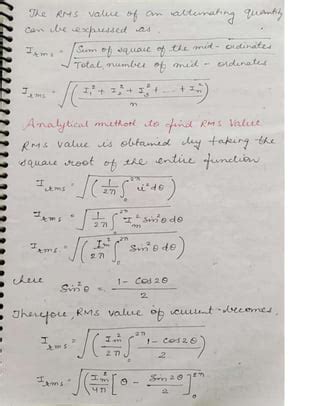 The RMS value of an alternating quantity
can be expressed as.
I_rms = √(Sum of square of the mid-ordinates / Total number of mid-ordinates)
I_rms = √((I₁² + I₂² + I₃² + ... + Iₙ²) / n)
Analytical method to find RMS Value
RMS value is obtained by taking the
square root of the entire function
I_rms = √((1/2π) ∫₀^2π i² dθ)
I_rms = √((1/2π) ∫₀^2π Iₘ² sin²θ dθ)
I_rms = √((Iₘ²/2π) ∫₀^2π Sin²θ dθ)
here Sin²θ = (1 - Cos2θ) / 2
Therefore, RMS value of current becomes,
I_rms = √((Iₘ²/2π) ∫₀^2π (1 - Cos2θ) / 2)
I_rms = √((Iₘ²/4π) [θ - Sin2θ / 2]₀^2π